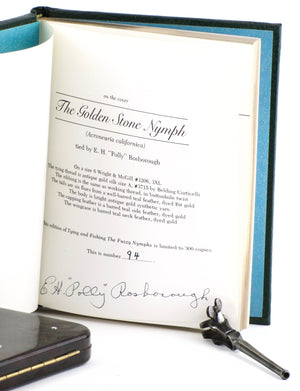 on the cover
The Golden Stone Nymph
(Acroneuria californica)
tied by E. H. "Polly" Rosborough
On a size 6 Wright & McGill #1206, 3XL
The tying thread is antique gold silk size A, #3715 by Belding Corticelli
The ribbing is the same as working thread, in buttonhole twist
The tails are six fibers from a well-barred teal feather, dyed gold
The body is bright antique gold synthetic yarn
The capping feather is a barred teal side feather, dyed gold
The wingcase is barred teal neck feather, dyed gold
This edition of Tying and Fishing The Fuzzy Nymphs is limited to 300 copies.
This is number 94
E H "Polly" Rosborough